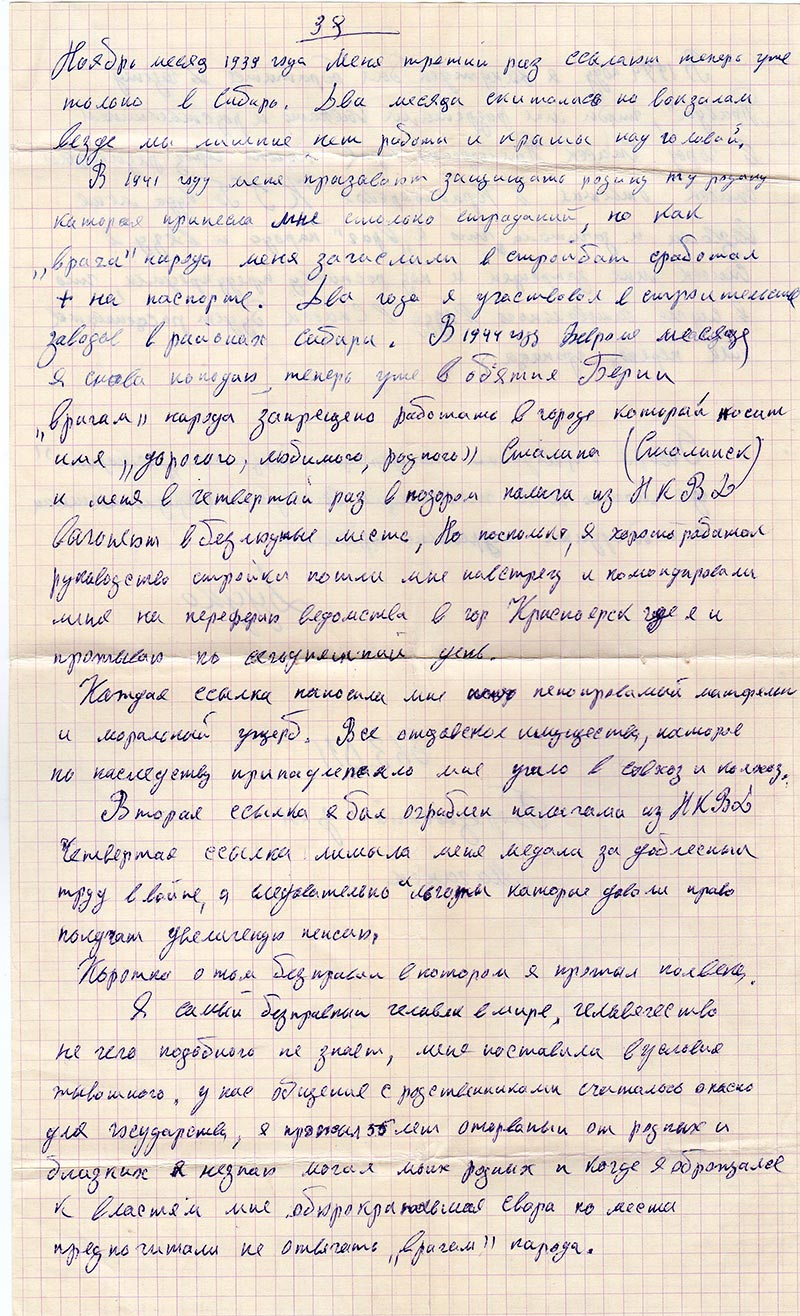 38
Ноябрь месяц 1939 года меня третий раз ссылают теперь уже
только в Сибирь. Два месяца скиталась по вокзалам
везде мы лишние нет работы и крыши над головой.
В 1941 году меня призавают защищать родину ту родину
каторая принесла мне столько страданий, но как
„врага" народа меня зачислили в стройбат сработал
+ на паспорте. Два года я участвовал в строительстве
заводов в районах Сибири. В 1944 году феврале месяце
я снова пападаю, теперь уже в обятия Берии
„врагам" народа запрещено работать в городе который носит
имя „дорогого, любимого, родного" Сталина (Сталинск)
и меня в четвертый раз с позором палачи из НКВД
выгоняют в безлюдные места, Но поскольку, я хорошо работал
рукаводство стройки пошли мне навстречу и командировали
меня на переферию ведомства в гор Красноярск где я и
проживаю по сегодняшний день.
Каждая ссылка наносила мне материальн
и моральный ущерб. Все отцовское имущество, каторое
по наследству принадлежало мне ушло в совхоз и колхоз.
Вторая ссылка я был ограблен палачами из НКВД
Четвертая ссылка лишила меня медали за доблесный
труд в войне, а следовательно и льготы каторые довали право
получат увеличеную пенсию.
Коротко о том безправии в котором я прожил полвека.
Я самый безправный человек в мире, человечество
не чего подобного не знает, меня поставили в условия
животного, у нас общения с родственниками считалось опасно
для государства, я прожил 55 лет оторваный от родных и
близких я незнаю могил моих родных и когде я обращался
к властям мне свора на места
предпочитали не отвечать „врагам" народа.